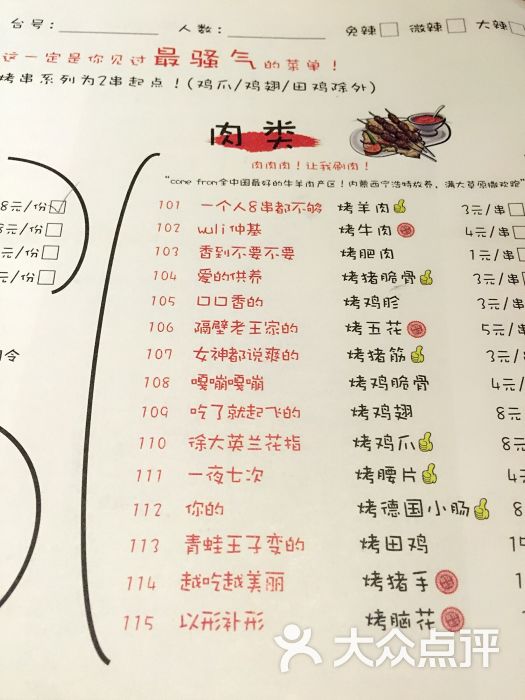 台号: 人数: 免辣 微辣 大辣
这一定是你见过最骚气的菜单!
烤串系列为2串起点!(鸡爪/鸡翅/田鸡除外)
肉类
肉肉肉!让我刷肉!
"come from全中国最好的牛羊肉产区!内蒙西宁浩特放养,满大草原撒欢跑"
8元/份
元/份
元/份
元/份
101 一个人8串都不够 烤羊肉 3元/串
102 wuli仲基 烤牛肉 4元/串
103 香到不要不要 烤肥肉 1元/串
104 爱的供养 烤猪脆骨 3元/串
105 口口香的 烤鸡胗 3元/串
106 隔壁老王家的 烤五花 5元/串
107 女神都说爽的 烤猪筋 3元/
108 嘎嘣嘎嘣 烤鸡脆骨 4元/
109 吃了就起飞的 烤鸡翅 8元/
110 徐大英兰花指 烤鸡爪 8元
111 一夜七次 烤腰片 4元
112 你的 烤德国小肠 8
113 青蛙王子变的 烤田鸡 15
114 越吃越美丽 烤猪手
115 以形补形 烤脑花
大众点评